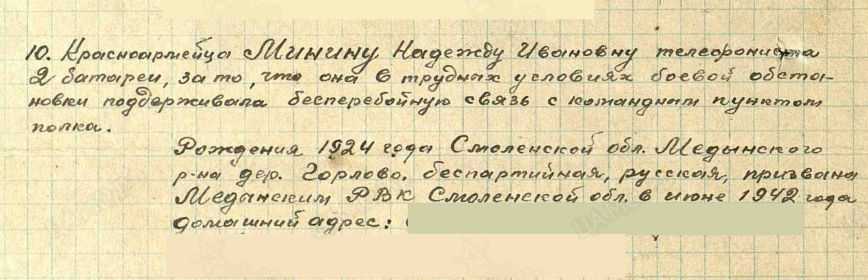 10. Красноармейца Минину Надежду Ивановну телефониста
2 батареи, за то, что она в трудных условиях боевой обста-
новки поддерживала бесперебойную связь с командным пунктом
полка.
Рождения 1924 года Смоленской обл. Медынского
р-на дер. Горлово, беспартийная, русская, призвана
Медынским РВК Смоленской обл. в июне 1942 года
домашний адрес: